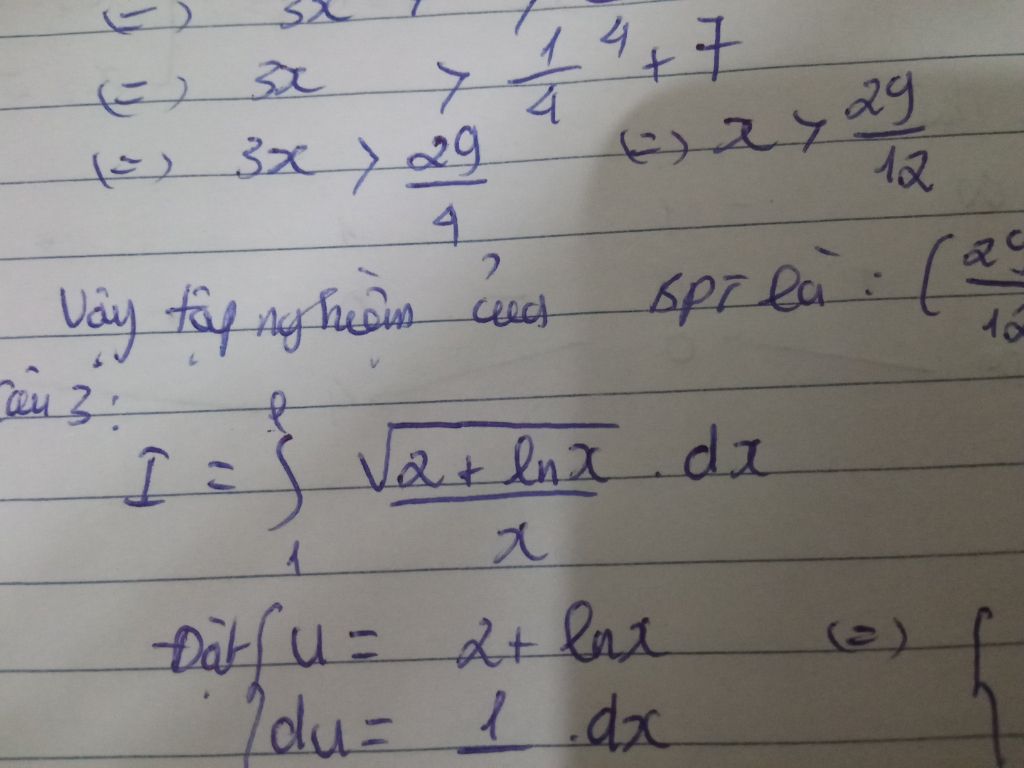 (=) 3x
(=) 3x > 1/4 4 + 7
(=) 3x > 29/4 (=) x > 29/12
Vậy tập nghiệm của bpt là : (29/12
Câu 3 :
I = ∫₁ᵉ √(2 + lnx)/x . dx
Đặt { u = 2 + lnx (=) {
du = 1 . dx